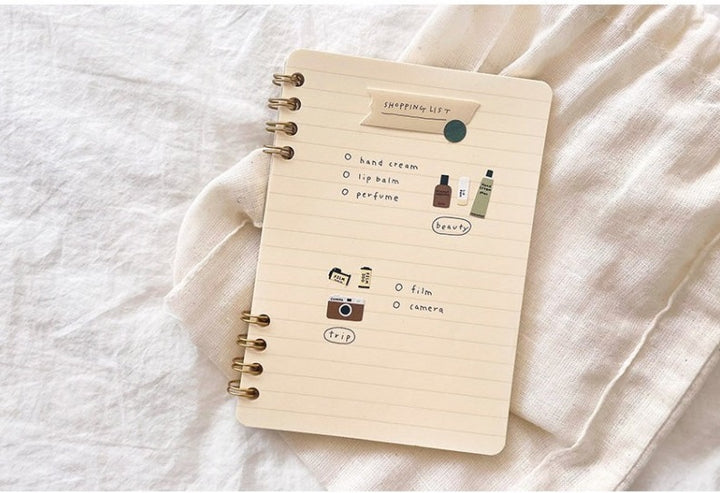 SHOPPING LIST
hand cream
lip balm
perfume
beauty
film
camera
trip